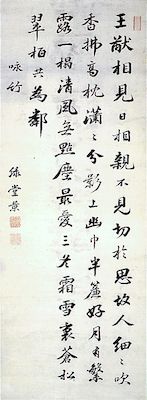 王猷相見日相親不見切於思故人細〻吹
香拂高枕瀟〻分影上幽巾半簾好月有繁
露一榻清風無點塵最愛三冬霜雪裏蒼松
翠柏共為鄰
咏竹